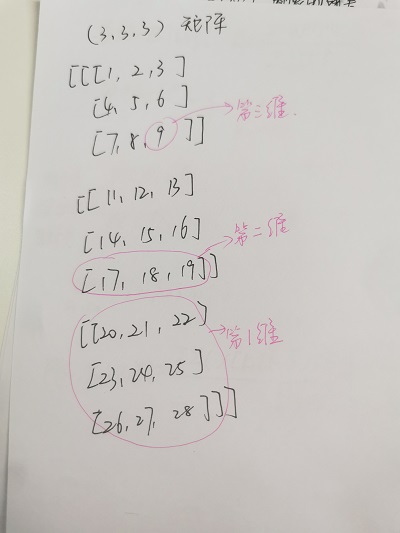 (3,3,3) 矩阵
[[[1, 2, 3]
[4, 5, 6]
[7, 8, 9]]
第三维.
[[11, 12, 13]
[14, 15, 16]
第二维
[17, 18, 19]]
[[20, 21, 22]
第1维
[23, 24, 25]
[26, 27, 28]]]